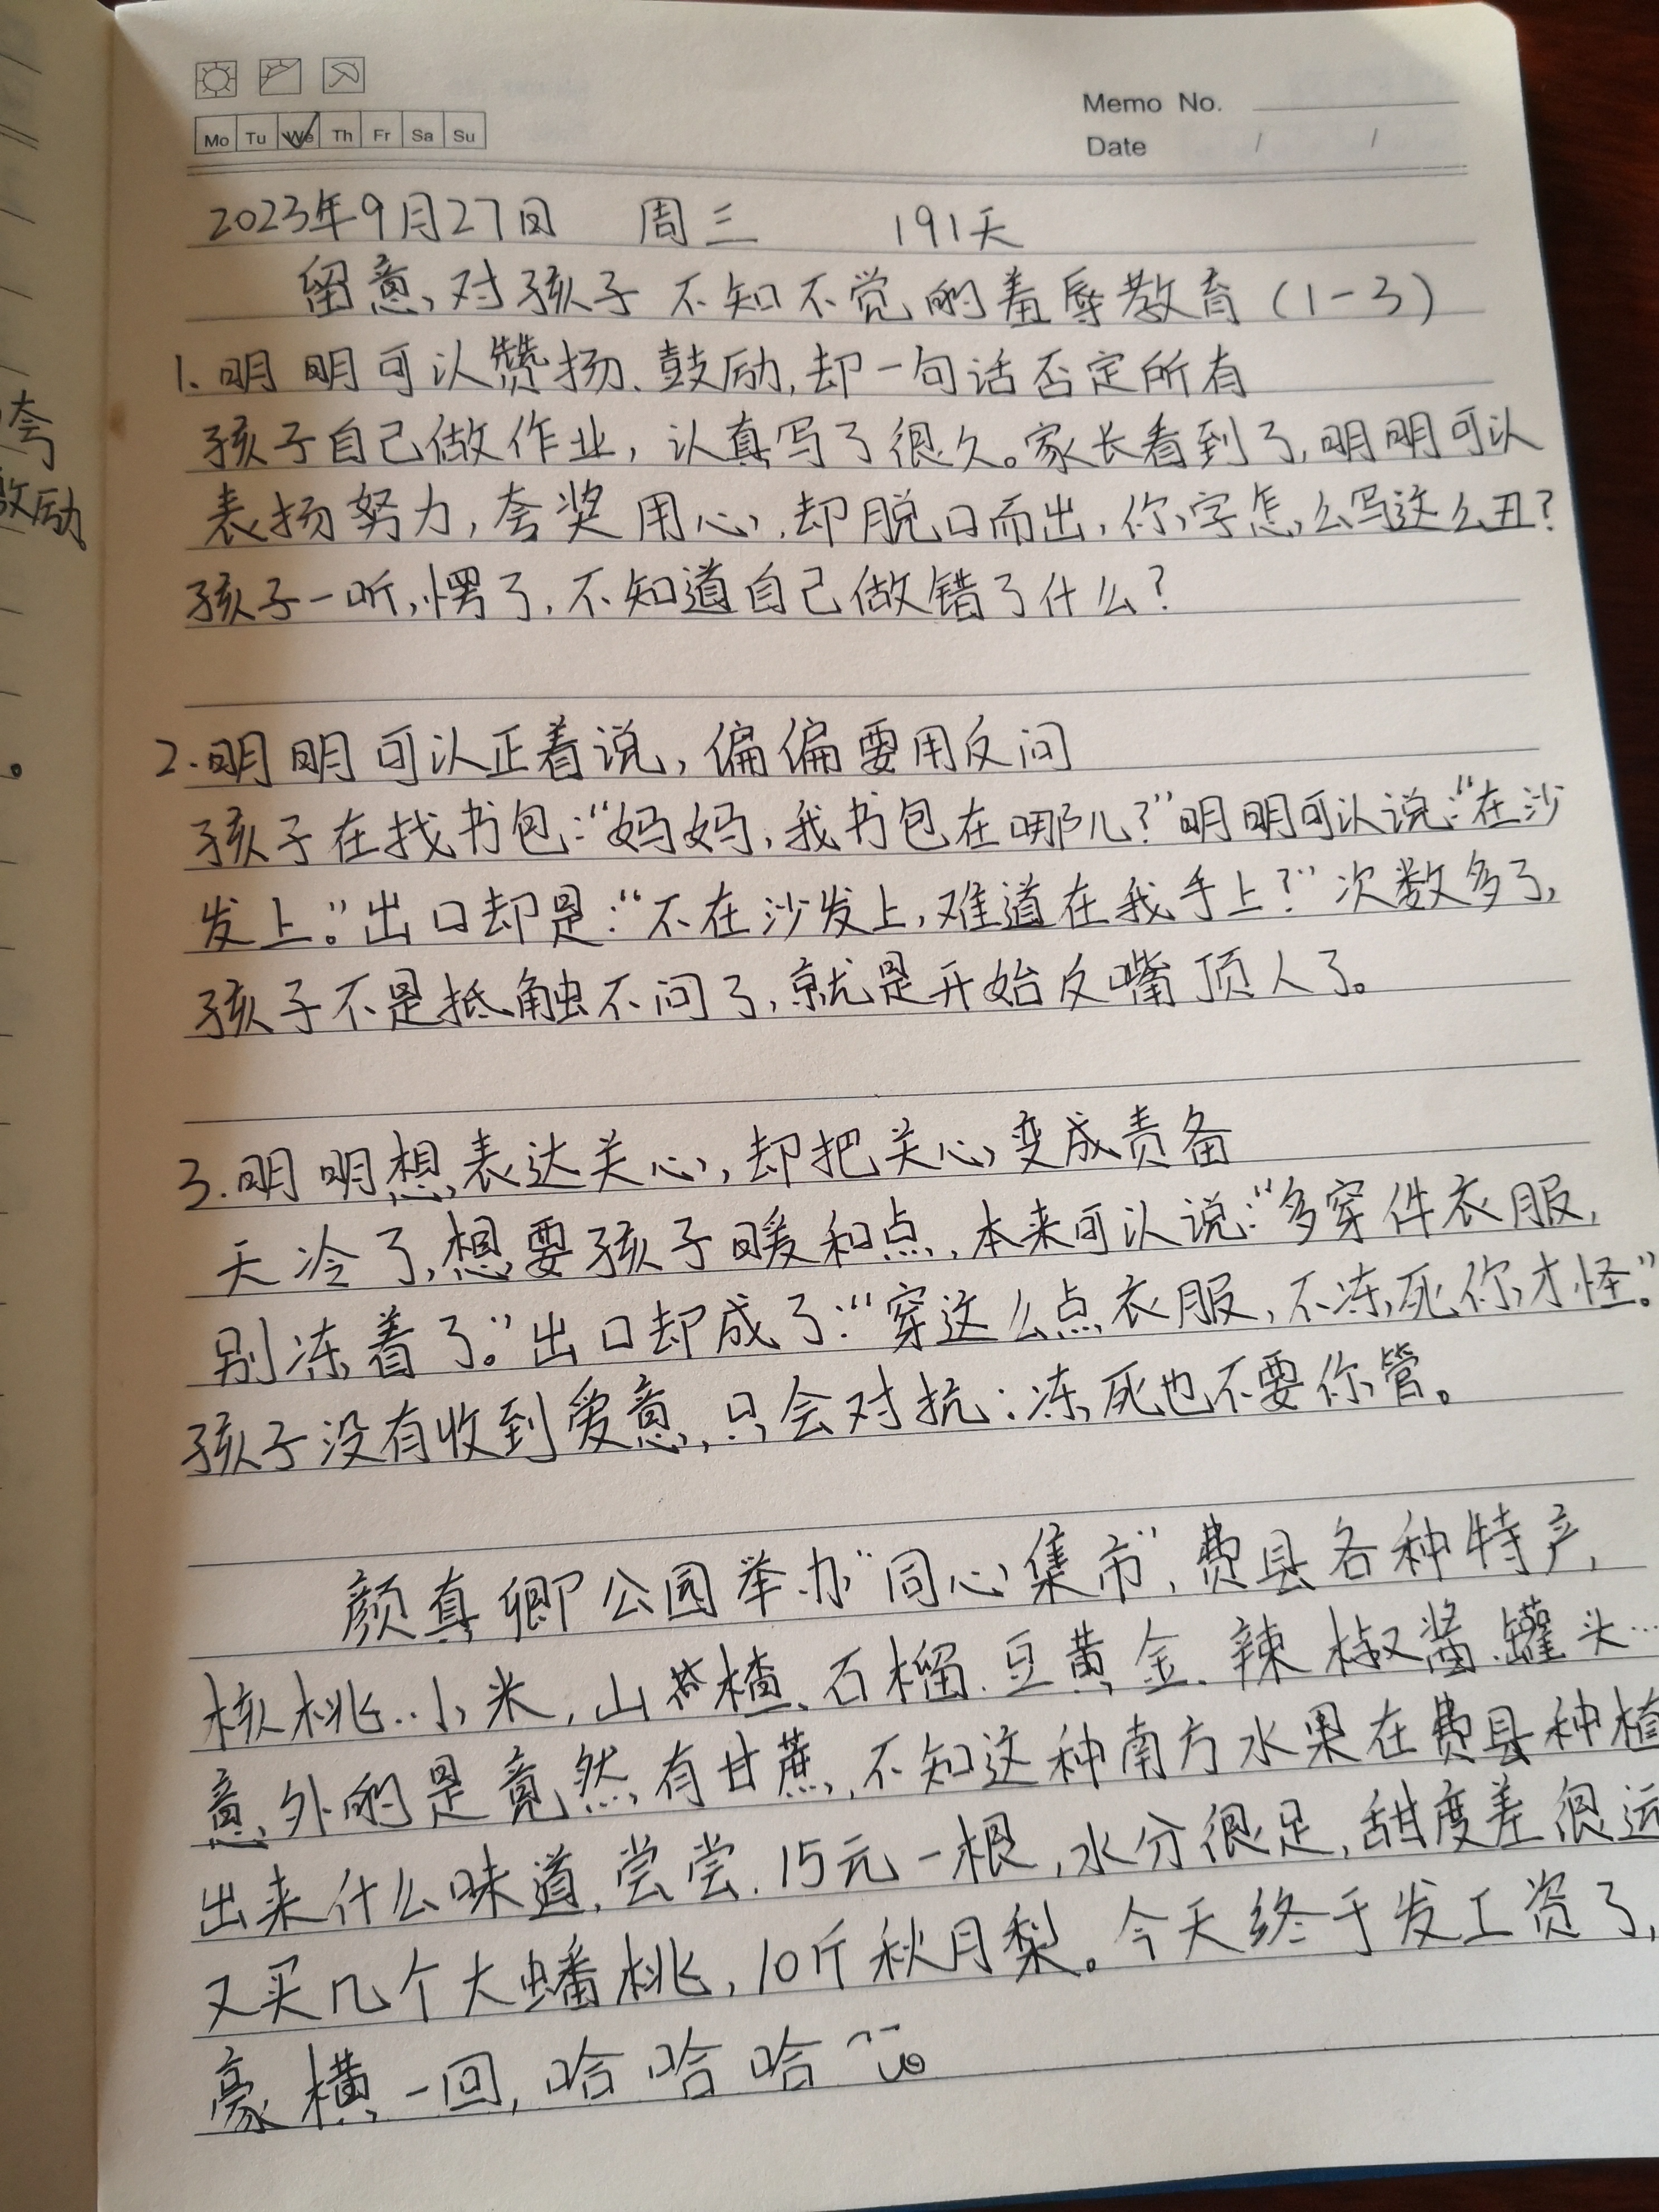 夸
励
。
Mo Tu We Th Fr Sa Su
Memo No.
Date / /
2023年9月27日 周三 191天
留意,对孩子不知不觉的羞辱教育(1-3)
1.明明可以赞扬、鼓励,却一句话否定所有
孩子自己做作业,认真写了很久。家长看到了,明明可以
表扬努力,夸奖用心,却脱口而出,你字怎么写这么丑?
孩子一听,愣了,不知道自己做错了什么?
2.明明可以正着说,偏偏要用反问
孩子在找书包:“妈妈,我书包在哪儿?”明明可以说:“在沙
发上。”出口却是:“不在沙发上,难道在我手上?”次数多了,
孩子不是抵触不问了,就是开始反嘴顶人了。
3.明明想表达关心,却把关心变成责备
天冷了,想要孩子暖和点,本来可以说:“多穿件衣服,
别冻着了。”出口却成了:“穿这么点衣服,不冻死你才怪。”
孩子没有收到爱意,只会对抗:冻死也不要你管。
颜真卿公园举办“同心集市”,费县各种特产,
核桃、小米,山楂、石榴、豆黄金、辣椒酱、罐头…
意外的是竟然有甘蔗,不知这种南方水果在费县种植
出来什么味道,尝尝,15元一根,水分很足,甜度差很远
又买几个大蟠桃,10斤秋月梨。今天终于发工资了,
豪横一回,哈哈哈